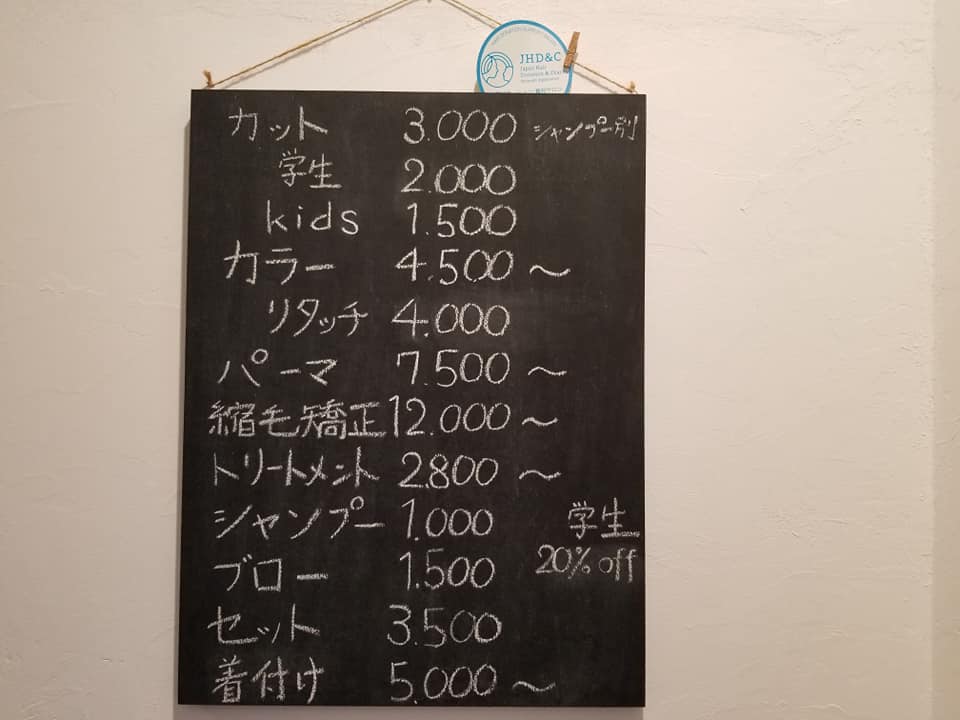 JHD&C
Japan Hair
Donation & Charity
カット 3.000 シャンプー別
学生 2.000
kids 1.500
カラー 4.500 〜
リタッチ 4.000
パーマ 7.500 〜
縮毛矯正 12.000 〜
トリートメント 2.800 〜
シャンプー 1.000 学生
ブロー 1.500 20% off
セット 3.500
着付け 5.000 〜